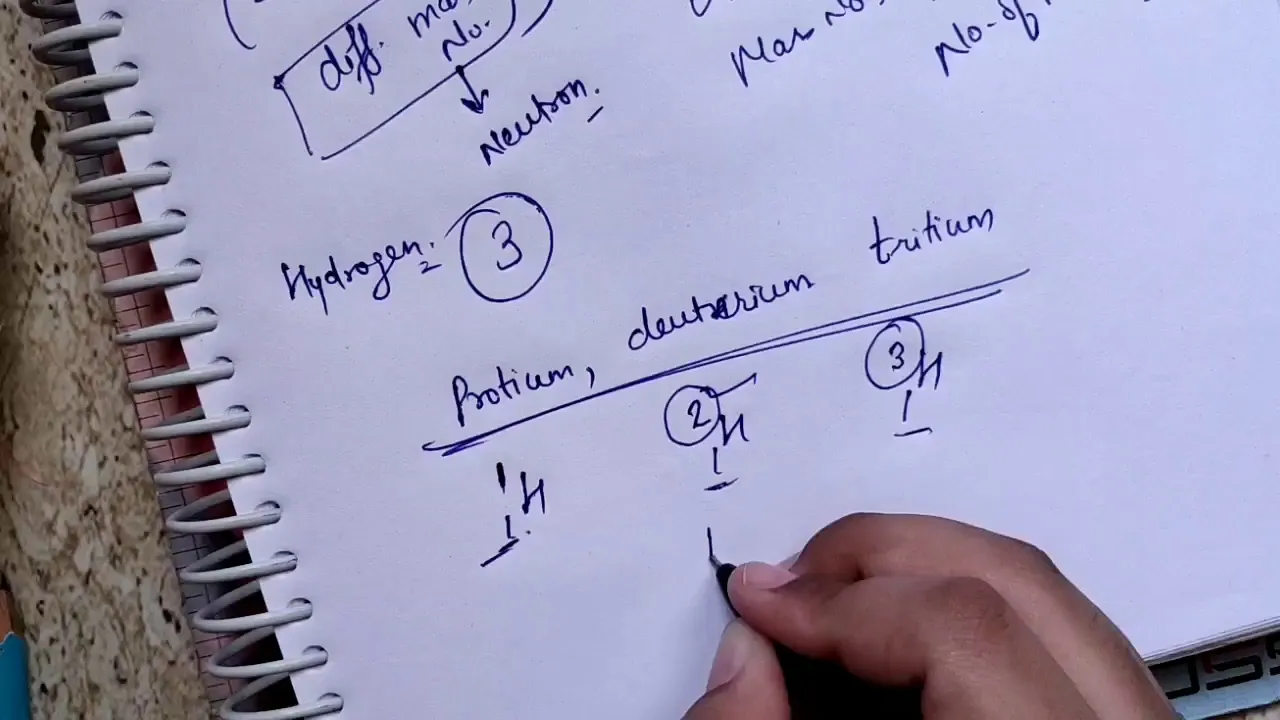 diff. mas
No.
Neutron.
Mas No.
No. of
Hydrogen. 3
Protium, deuterium tritium
1 H 1
2 H 1
3 H 1